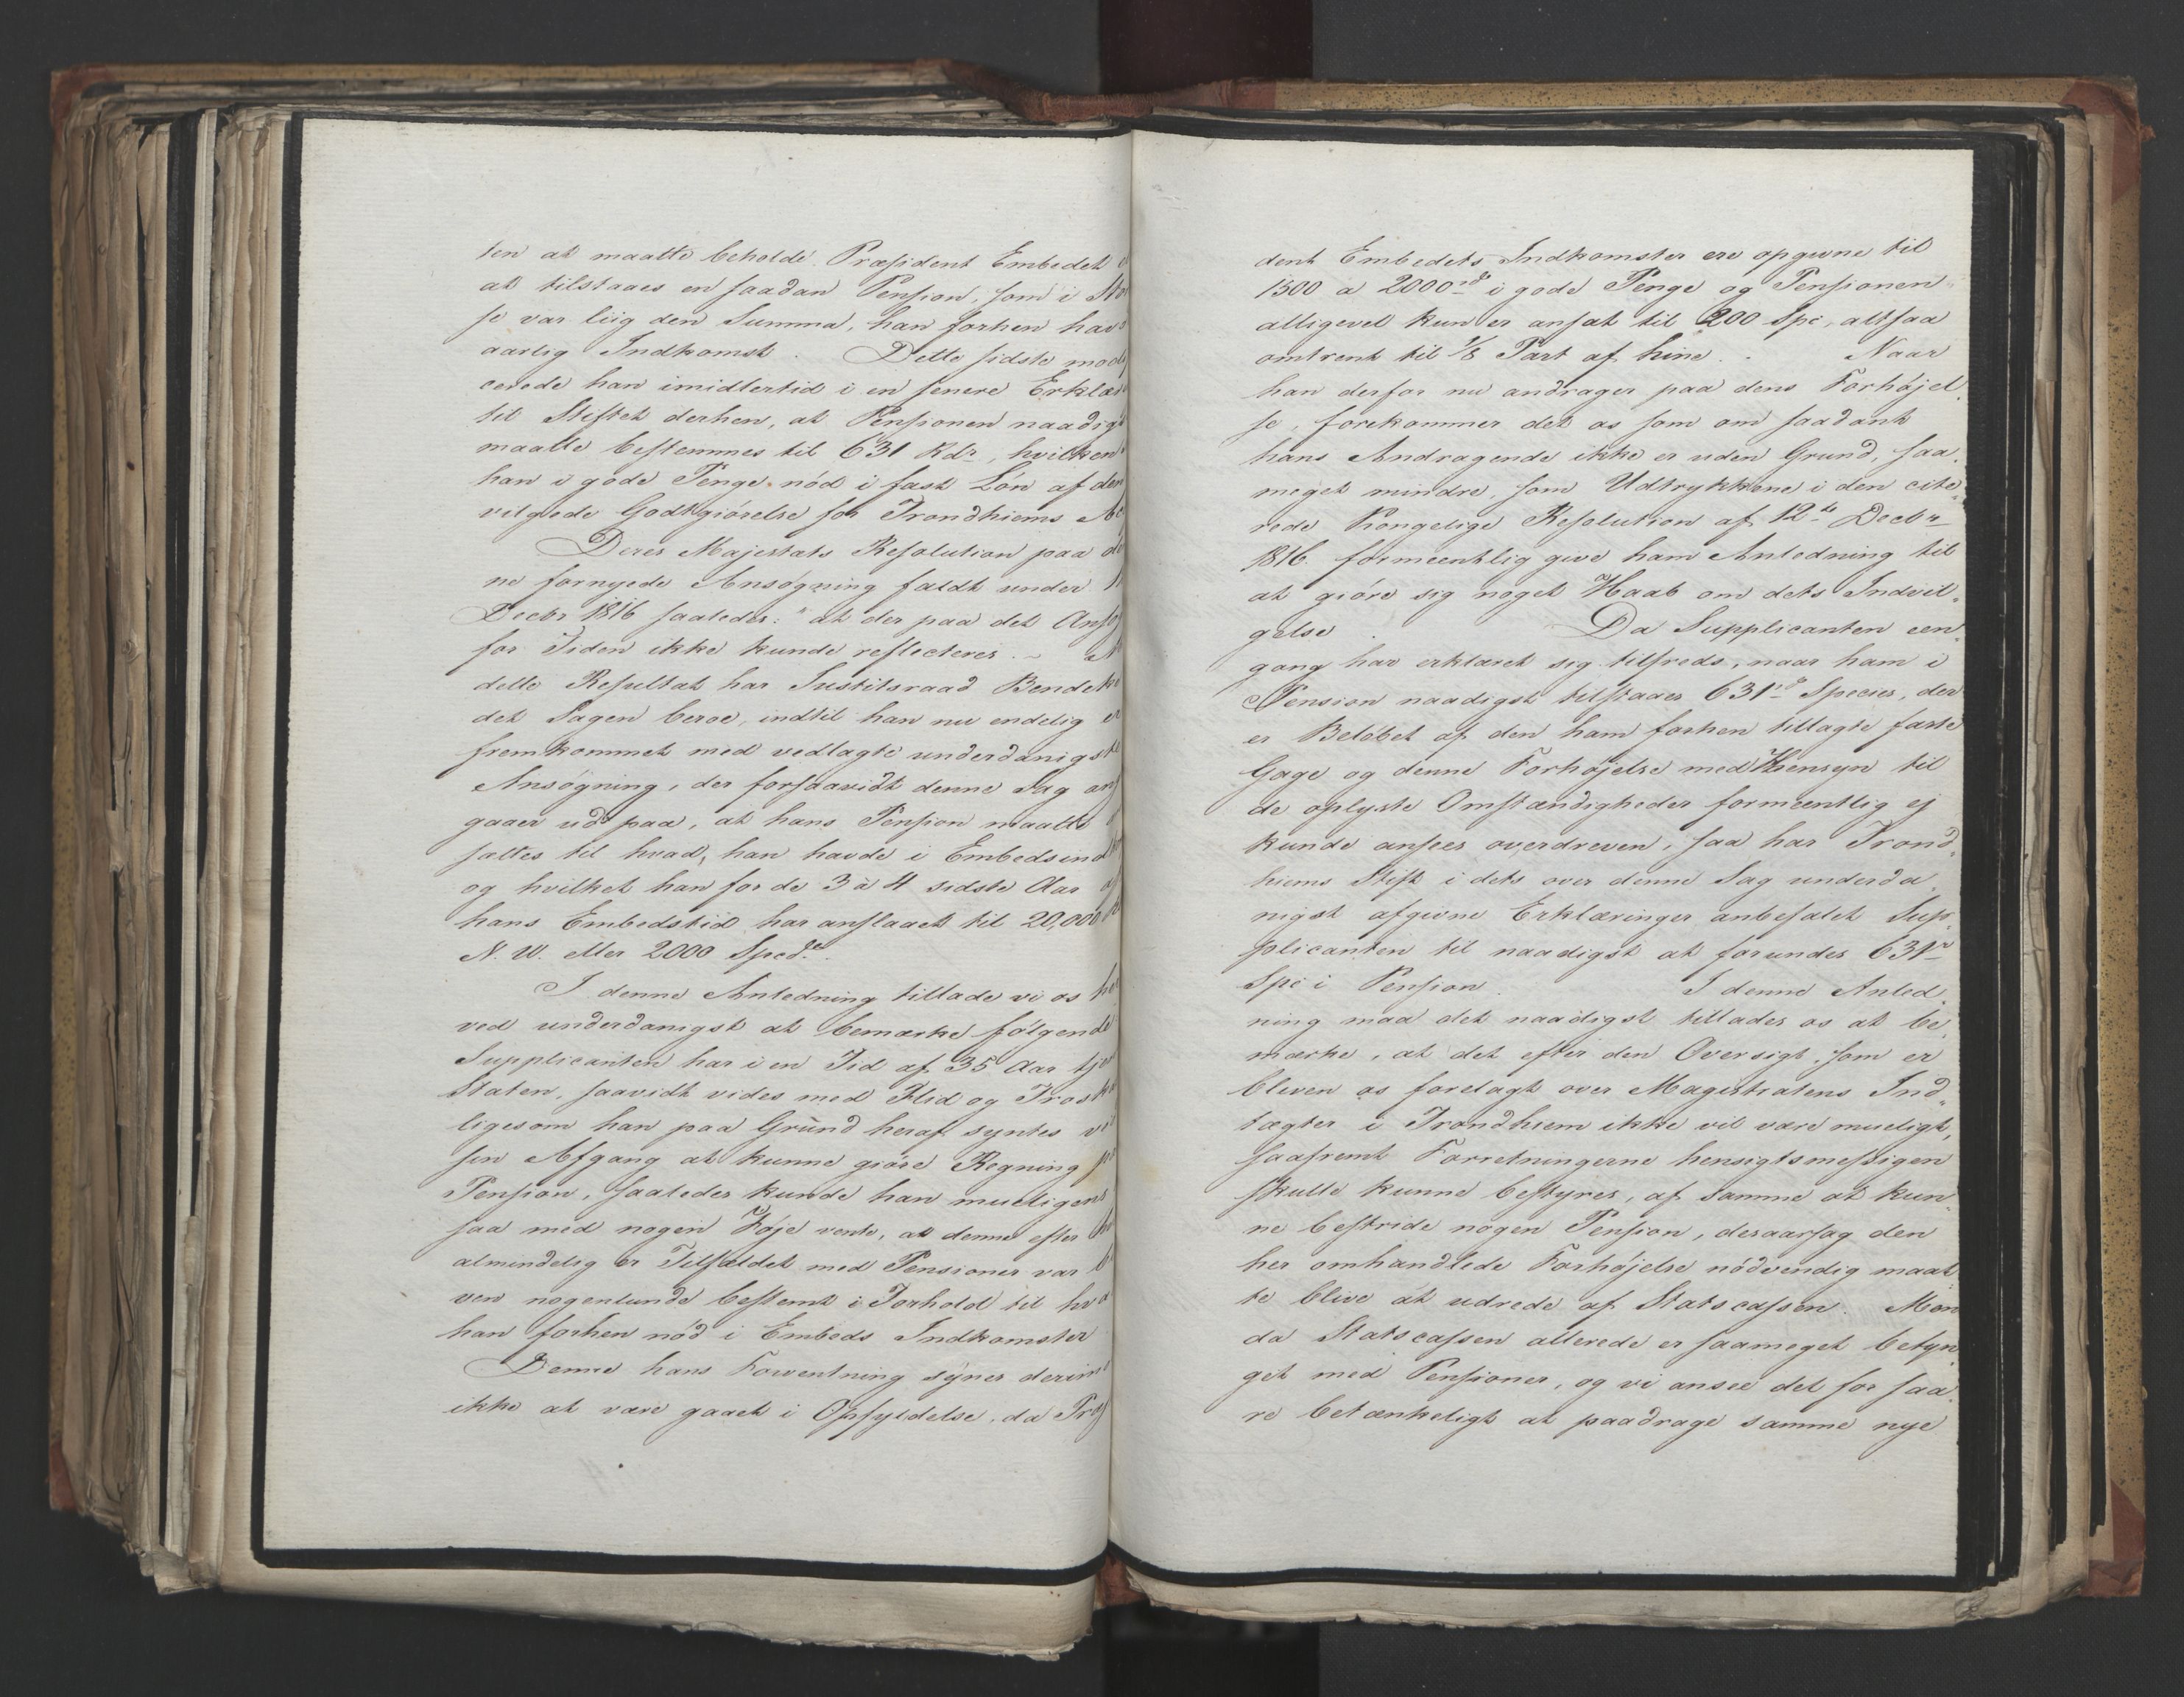 ten at maatte beholde Præsident Embedet
at tilstaaes en saadan Pension, som i
se var liig den Summa, han forhen hav
aarlig Indkomst. Dette sidste modi
cerede han imidlertid i en senere Erklæ
til Stiftet derhen, at Pensionen naadig
maatte bestemmes til 631 Rdr, hvilken
han i gode Penge nød i fast Løn af den
vilgede Godtgiørelse for Trondhiems
Deres Majestæts Resolution paa de
ne fornyede Ansøgning faldt under
Decbr 1816 saaledes: "at der paa det Ansø
for Tiden ikke kunde reflecteres. -
dette Resultat har Justitsraad Bendeke
det Sagen beroe, indtil han nu endelig er
fremkommet med vedlagte underdanigste
Ansøgning, der forsaavidt denne Sag an
gaaer ud paa, at hans Pension maatte
sættes til hvad, han havde i Embedsind
og hvilket han for de 3 à 4 sidste Aar af
hans Embedstid har anslaaet til 20,000
N. W. eller 2000 Spcd.
I denne Anledning tillade vi os her
ved underdanigst at bemærke følgende
Supplicanten har i en Tid af 35 Aar tje
Staten, saavidt vides med Flid og Trosk
ligesom han paa Grund heraf syntes v
sin Afgang at kunne giøre Regning p
Pension, saaledes kunde han mueligens
saa med nogen Føje vente, at denne efter
almindelig er Tilfældet med Pensioner var b
ven nogenlunde bestemt i Forhold til hva
han forhen nød i Embeds Indkomster
Denne hans Forventning synes derim
ikke at være gaaet i Opfyldelse, da Præs
dent Embedets Indkomster ere opgivne til
1500 a 2000 rd i gode Penge og Pensionen
alligevel kun er ansat til 200 Spc, altsaa
omtrent til 1/8 Part af hine. Naar
han derfor nu andrager paa dens Forhøjel,
se, forekommer det os som om saadant
hans Andragende ikke er uden Grund, saa,
meget mindre, som Udtrykkene i den cite,
rede Kongelige Resolution af 12te Decbr
1816 formeentlig give ham Anledning til
at giøre sig noget Haab om dets Indvil,
gelse. Da Supplicanten een,
gang har erklæret sig tilfreds, naar ham i
Pension naadigst tilstaaes 631 rd Species, der
er Beløbet af den ham forhen tillagte faste
Gage og denne Forhøjelse med Hensyn til
de oplyste Omstændigheder formeentlig ej
kunde ansees overdreven, saa har Trond,
hiems Stift i dets over denne Sag underda,
nigst afgivne Erklæringer anbefalet Sup,
plicanten til naadigst at forundes 631 r
Spc i Pension. I denne Anled,
ning maa det naadigst tillades os at be,
mærke, at det efter den Oversigt, som er
bleven os forelagt over Magistratens Ind,
tægter i Trondhiem ikke vil være mueligt,
saafremt Forretningerne hensigtsmessigen
skulle kunne bestyres, af samme at kun,
ne bestride nogen Pension, desaarsag den
her omhandlede Forhøjelse nødvendig maat,
te blive at udrede af Statscassen. Men
da Statscassen allerede er saameget betyn,
get med Pensioner, og vi ansee det for saa,
re betænkeligt at paadrage samme nye